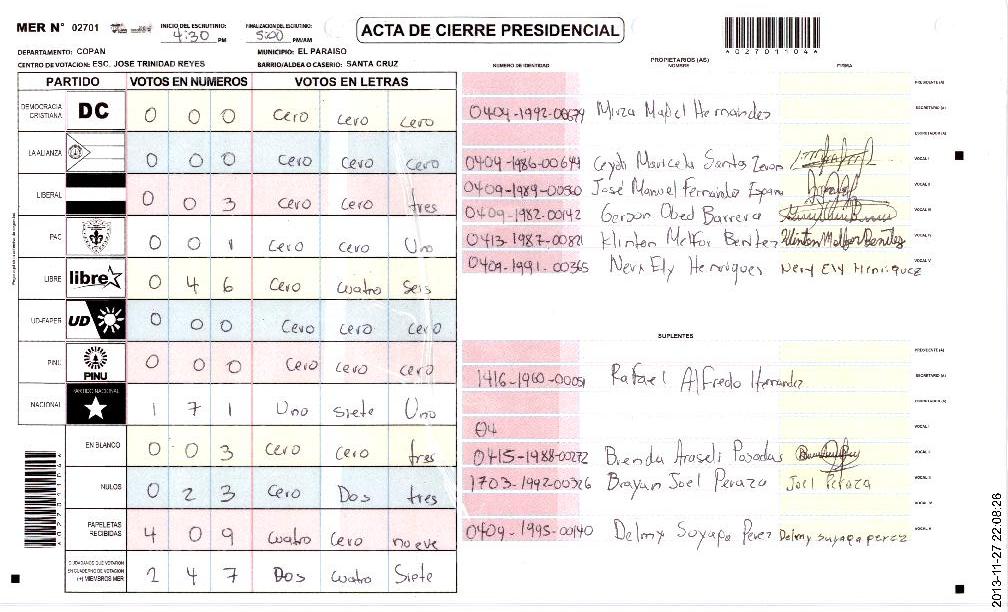 MER N° 02701 INICIO DEL ESCRUTINIO: 4:30 PM FINALIZACION DEL ESCRUTINIO: 5:00 PM/AM
ACTA DE CIERRE PRESIDENCIAL
*02701104*
DEPARTAMENTO: COPAN MUNICIPIO: EL PARAISO
CENTRO DE VOTACION: ESC. JOSE TRINIDAD REYES BARRIO/ALDEA O CASERIO: SANTA CRUZ
PARTIDO VOTOS EN NUMEROS VOTOS EN LETRAS
DEMOCRACIA CRISTIANA DC 0 0 0 cero cero cero
LA ALIANZA 0 0 0 cero cero cero
LIBERAL 0 0 3 cero cero tres
PAC 0 0 1 cero cero Uno
LIBRE libre 0 4 6 cero cuatro seis
UD-FAPER UD 0 0 0 cero cero cero
PINU PINU 0 0 0 cero cero cero
NACIONAL PARTIDO NACIONAL 1 7 1 Uno siete Uno
EN BLANCO 0 0 3 cero cero tres
NULOS 0 2 3 cero Dos tres
PAPELETAS RECIBIDAS 4 0 9 cuatro cero nueve
CIUDADANOS QUE VOTARON EN CUADERNO DE VOTACION (+) MIEMBROS MER 2 4 7 Dos cuatro Siete
*02701104*
PROPIETARIOS (AS)
NUMERO DE IDENTIDAD NOMBRE FIRMA
PRESIDENTE (A)
0404-1992-00679 Mirza Mabel Hernandez SECRETARIO (A)
ESCRUTADOR (A)
0409-1986-00644 Ceydi Maricela Santos VOCAL I
0409-1989-00560 José Manuel Fernandez VOCAL II
0409-1982-00142 Gerson Obed Barrera VOCAL III
0413-1987-00821 Klinton Melfor Benitez Klinton Melfor Benitez VOCAL IV
0409-1991-00365 Nery Ely Henriquez Nery Ely Henriquez VOCAL V
SUPLENTES
PRESIDENTE (A)
1416-1960-00051 Rafael Alfredo Hernandez SECRETARIO (A)
ESCRUTADOR (A)
04 VOCAL I
0415-1988-00272 Brenda Araseli Posadas VOCAL II
1703-1992-00326 Brayan Joel Peraza Joel Peraza
VOCAL IV
0409-1995-00140 Delmy Suyapa Perez Delmy suyapa perez VOCAL V
2013-11-27 22:08:26